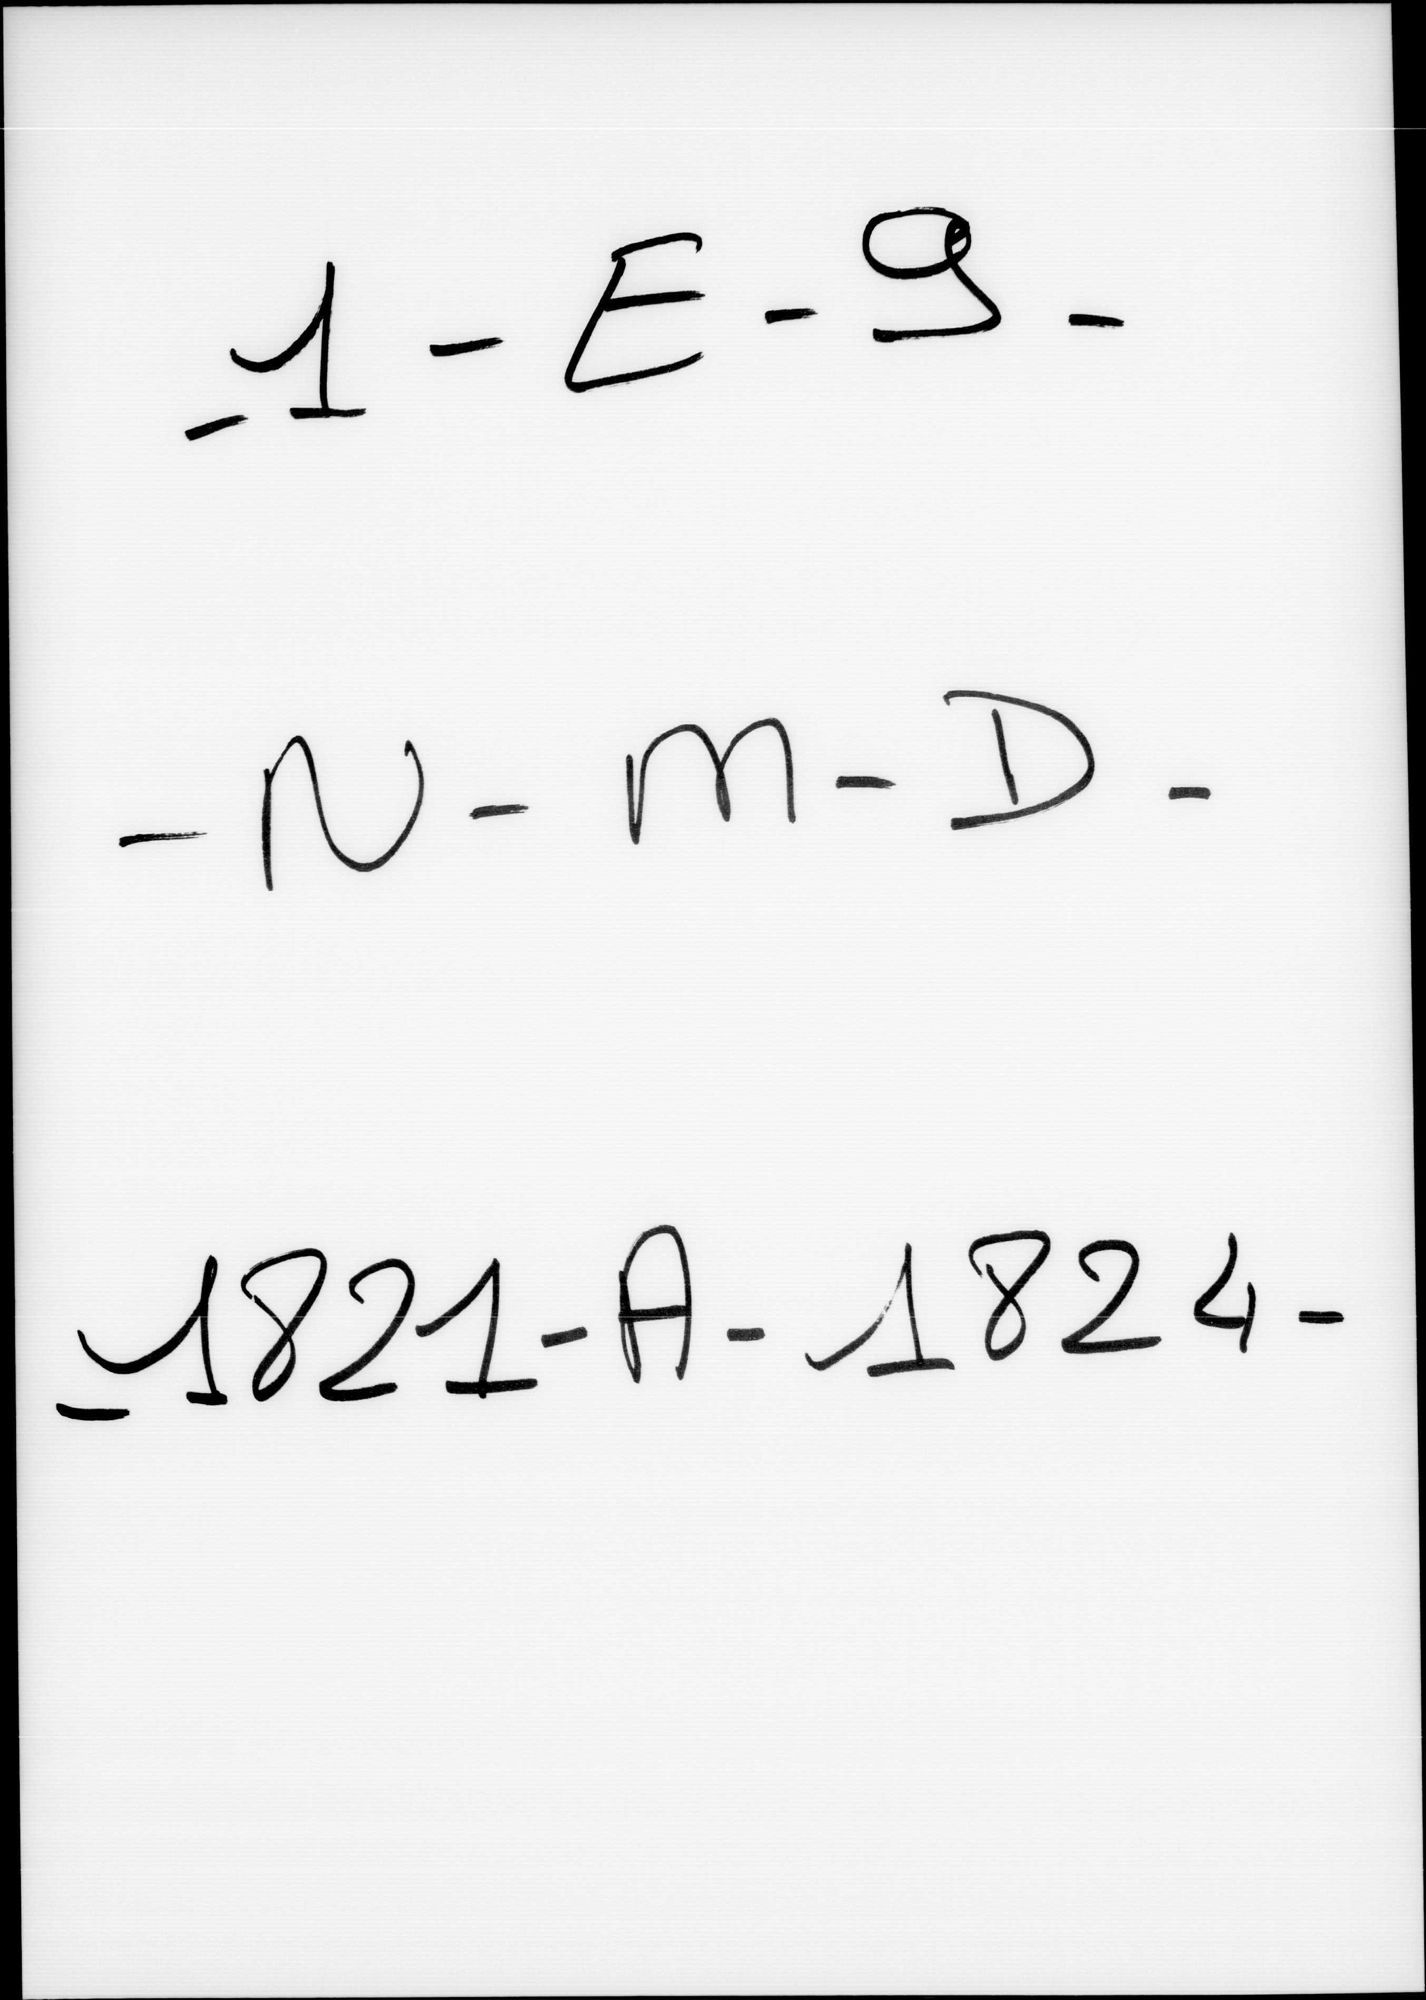 - 1 - E - 9 -
- N - M - D -
- 1821 - A - 1824 -